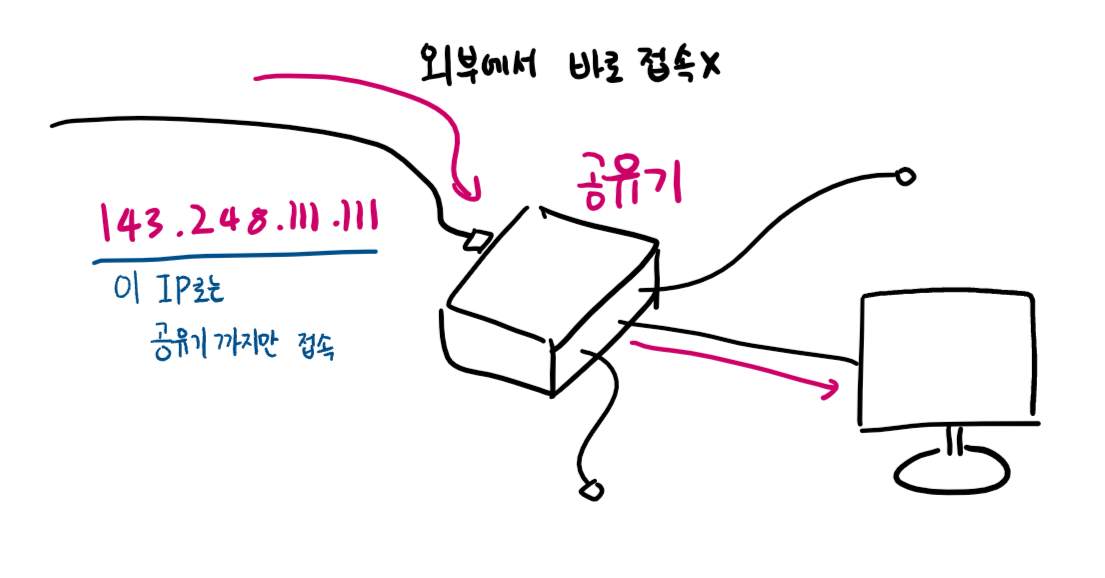 외부에서 바로 접속x
공유기
143.248.111.111
이 IP로는
공유기까지만 접속